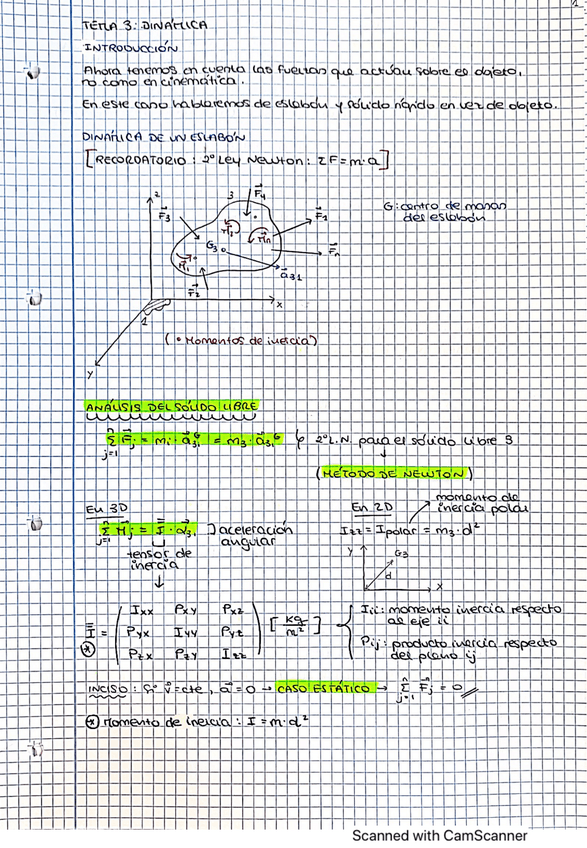 1
TEMA 3: DINÁMICA
INTRODUCCIÓN
Ahora tenemos en cuenta las fuerzas que actúan sobre el objeto,
no como en cinemática.
En este caso hablaremos de eslabón y sólido rígido en vez de objeto.
DINÁMICA DE UN ESLABÓN
[RECORDATORIO: 2º Ley Newton: ΣF = m·a]
z
3
F⃗4
F⃗3
F⃗1
G: centro de masas
del eslabón
M⃗n
G3
F⃗n
M⃗1
a⃗31
F⃗2
x
1
(• Momentos de inercia)
y
ANÁLISIS DEL SÓLIDO LIBRE
2º L.N. para el sólido libre 3
(MÉTODO DE NEWTON)
En 3D
En 2D
momento de
inercia polar
aceleración
angular
Izz = Ipolar = m3·d²
tensor de
inercia
y
G3
d
x
Ixx Pxy Pxz
Pyx Iyy Pyz
Pzx Pzy Izz
[kg/m²]
Iii: momento inercia respecto
al eje ii
Pij: producto inercia respecto
del plano ij
INCISO: Si v⃗ = cte, a⃗ = 0 → CASO ESTÁTICO → Σ F⃗j = 0
(*) Momento de inercia: I = m·d²
Scanned with CamScanner